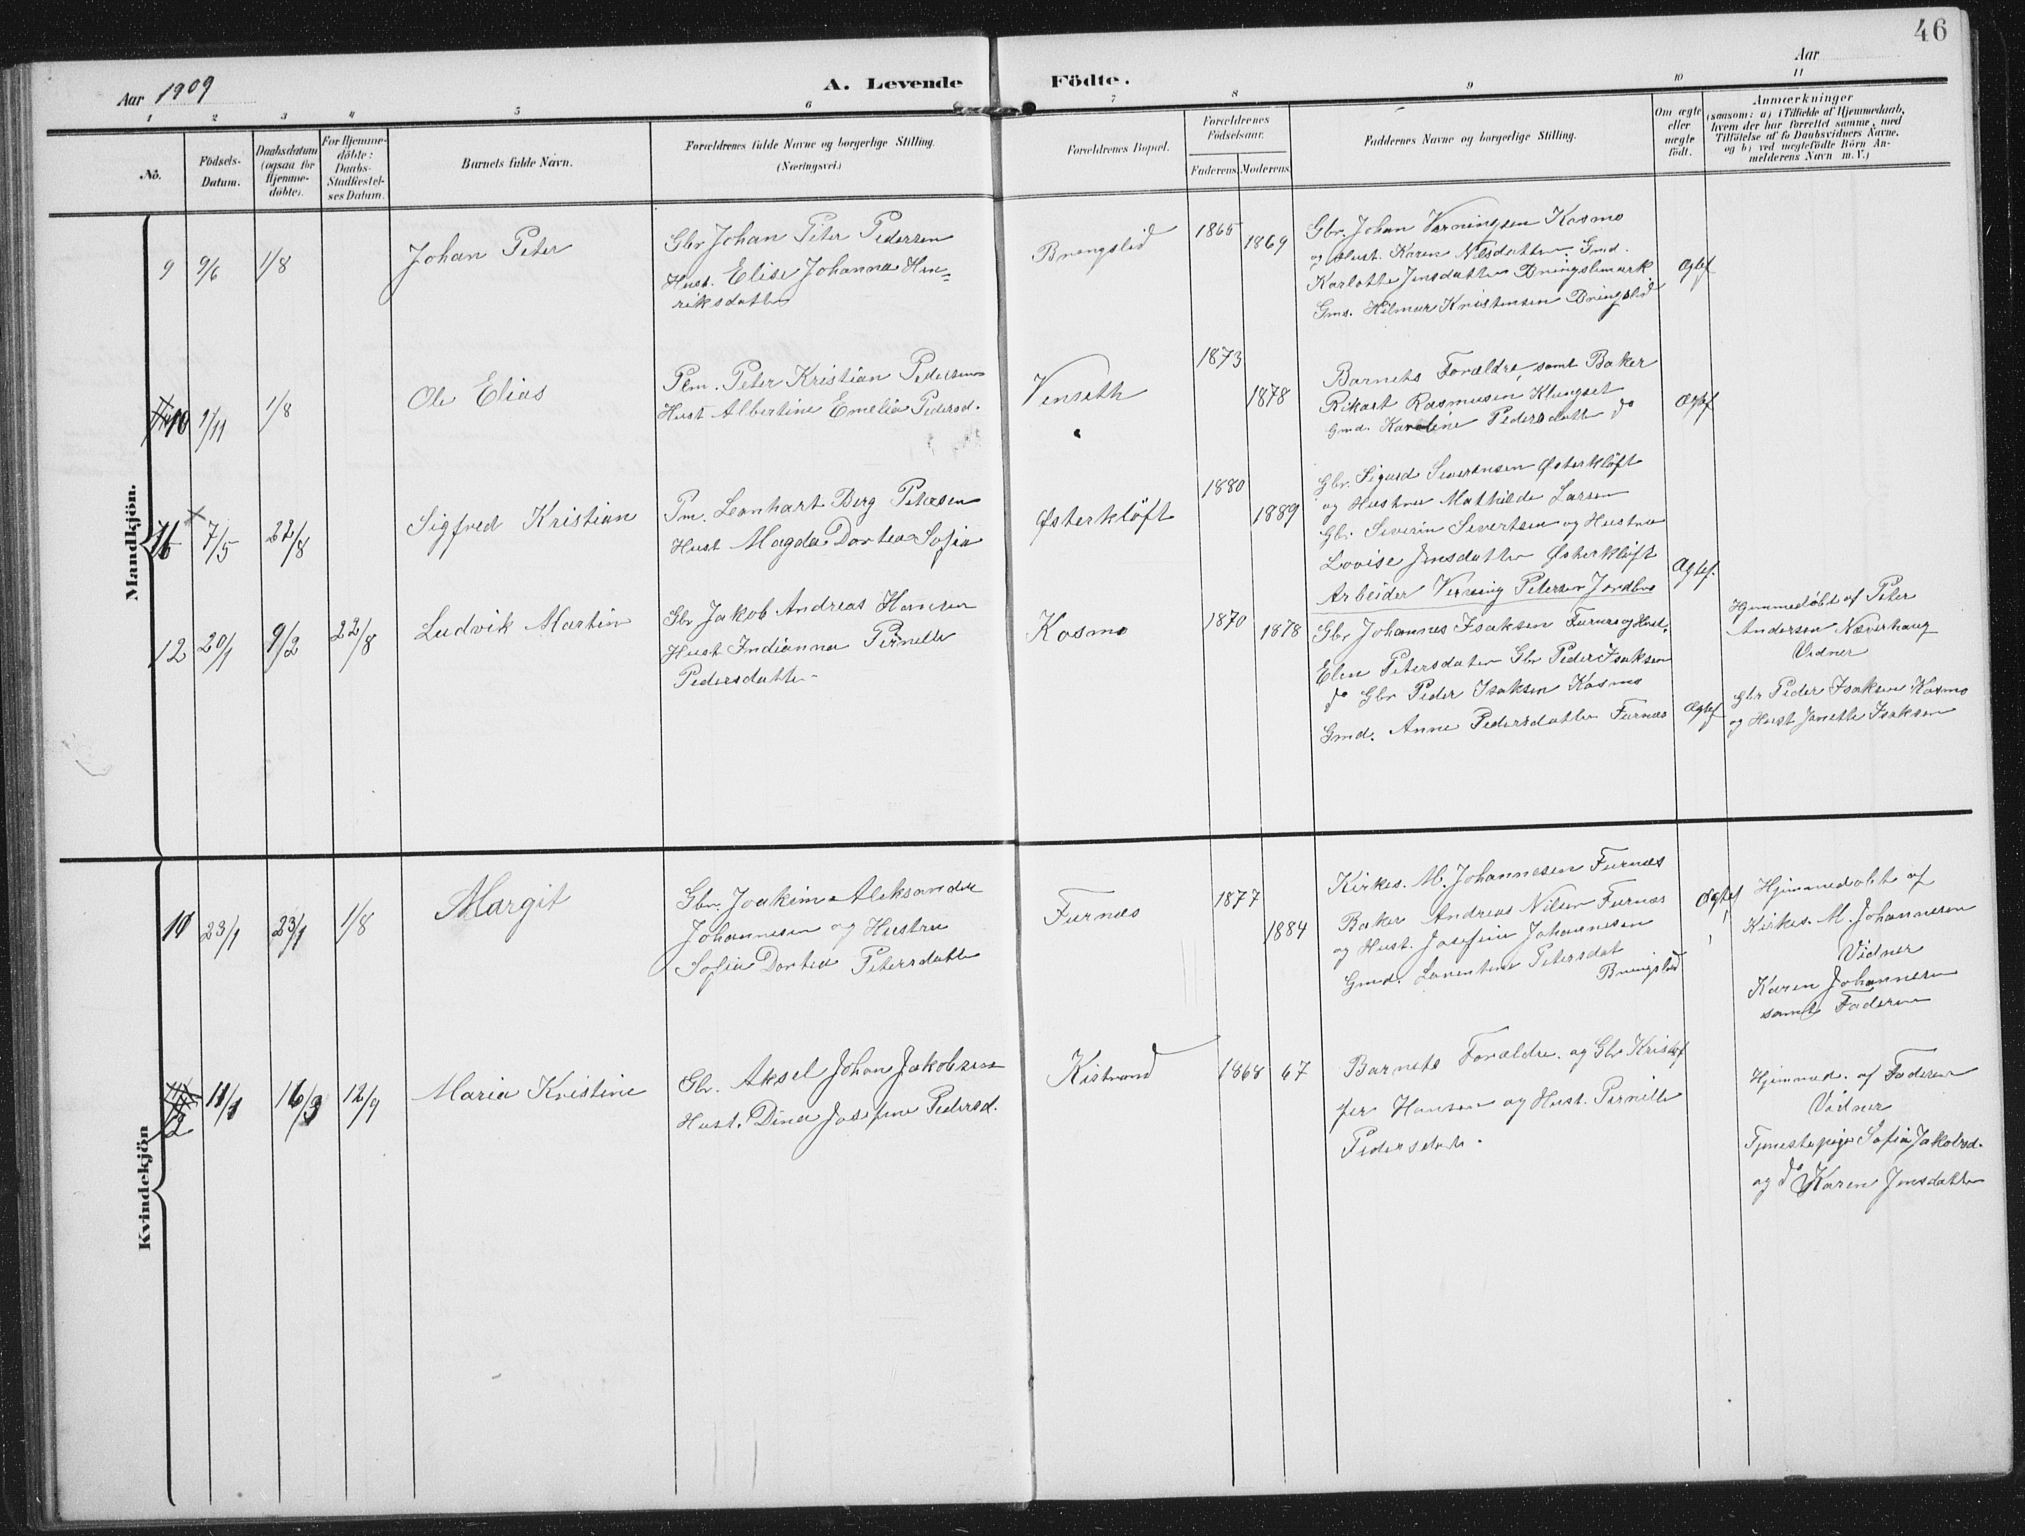 46
Aar 1909
A. Levende
Födte.
Aar
1 2 3 4 5 6 7 8 9 10 11
No.
Födsels-
Datum.
Daabsdatum
(ogsaa for
Hjemme-
døbte).
For Hjemme-
døbte:
Daabs-
Stadfæstel-
ses Datum.
Barnets fulde Navn.
Forældrenes fulde Navne og borgerlige Stilling.
(Næringsvei.)
Forældrenes Bopæl.
Forældrenes
Födselsaar.
Faderens. Moderens.
Faddernes Navne og borgerlige Stilling.
Om ægte
eller
uægte
födt.
Anmærkninger
(saasom: a) i Tilfælde af Hjemmedaab,
hvem der har forrettet samme, med
Tilföielse af to Daabsvidners Navne,
og b) ved uægtefödte Börn An-
melderens Navn m. V.)
Mandkjön.
9 9/6 1/8
Johan Peter
Gbr Johan Peter Pedersen
Hust. Elise Johanna Hen-
riksdatter
Bringslid
1865 1869
Gbr. Johan Verningsen Kosmo
og Hust. Karen Nilsdatter. Gmd.
Karlotte Jensdatter Bringslimark
Gms. Hilmar Kristensen Bringslid
Ægtef
10 1/11 1/8
Ole Elias
Pm. Peter Kristian Pedersen
Hust Albertine Emelia Pedersd.
Venseth
1873 1878
Barnets Forældre, samt Baker
Rikart Rasmusen Klungset
Gmd. Karoline Pedersdatter do
Ægtef
7/5 22/8
Sigfred Kristian
Pm. Leonhart Berg Petersen
Hust Magda Dortea Sofia
Østerkløft
1880 1889
Gbr. Sigurd Severinsen Østerkløft
og Hustru Mathilde Larsen
Gbr Severin Sivertsen og Hustru
Lovise Jensdatter Østerkløft
Arbeider Verning Petersen Jordbro
Ægtef.
12 20/1 9/2 22/8
Ludvik Martin
Gbr Jakob Andreas Hansen
Hust Indianna Pernelle
Pedersdatter
Kosmo
1870 1878
Gbr Johannes Isaksen Furnes og Hust.
Elen Petersdater Gbr Peder Isaksen
do Gbr Peder Isaksen Kosmo
Gmd. Anne Pedersdatter Furnæs
Ægtef
Hjemmedøbt af Peter
Andersen Næverhaug
Vidner
Gbr Peder Isaksen Kosmo
og Hust Janethe Isaksen
Kvindekjön
23/1 23/1 1/8
Margit
Gbr. Joakim Aleksander
Johannesen og Hustru
Sofia Dortea Petersdatter
Furnæs
1877 1884
Kirkes. M. Johannesen Furnæs
Baker Andreas Nilsen Furnæs
og Hust. Josefine Johannesen
Gmd. Lorentine Petersdat
Bringslid
Ægtef
Hjemmedøbt af
Kirkes. M. Johannesen
Vidner
Karen Johannesen
samt Faderen
12 11/1 16/3 12/9
Maria Kristine
Gbr. Aksel Johan Jakobsen
Hust. Dina Josefine Pedersd.
Kistrand
1868 67
Barnets Forældre og Gbr Kristof
fer Hansen og Hust. Pernille
Pedersdatr.
Hjemmed. af Faderen
Vidner
Tjenestepige Sofia Jakobsd.
og do Karen Jensdatter